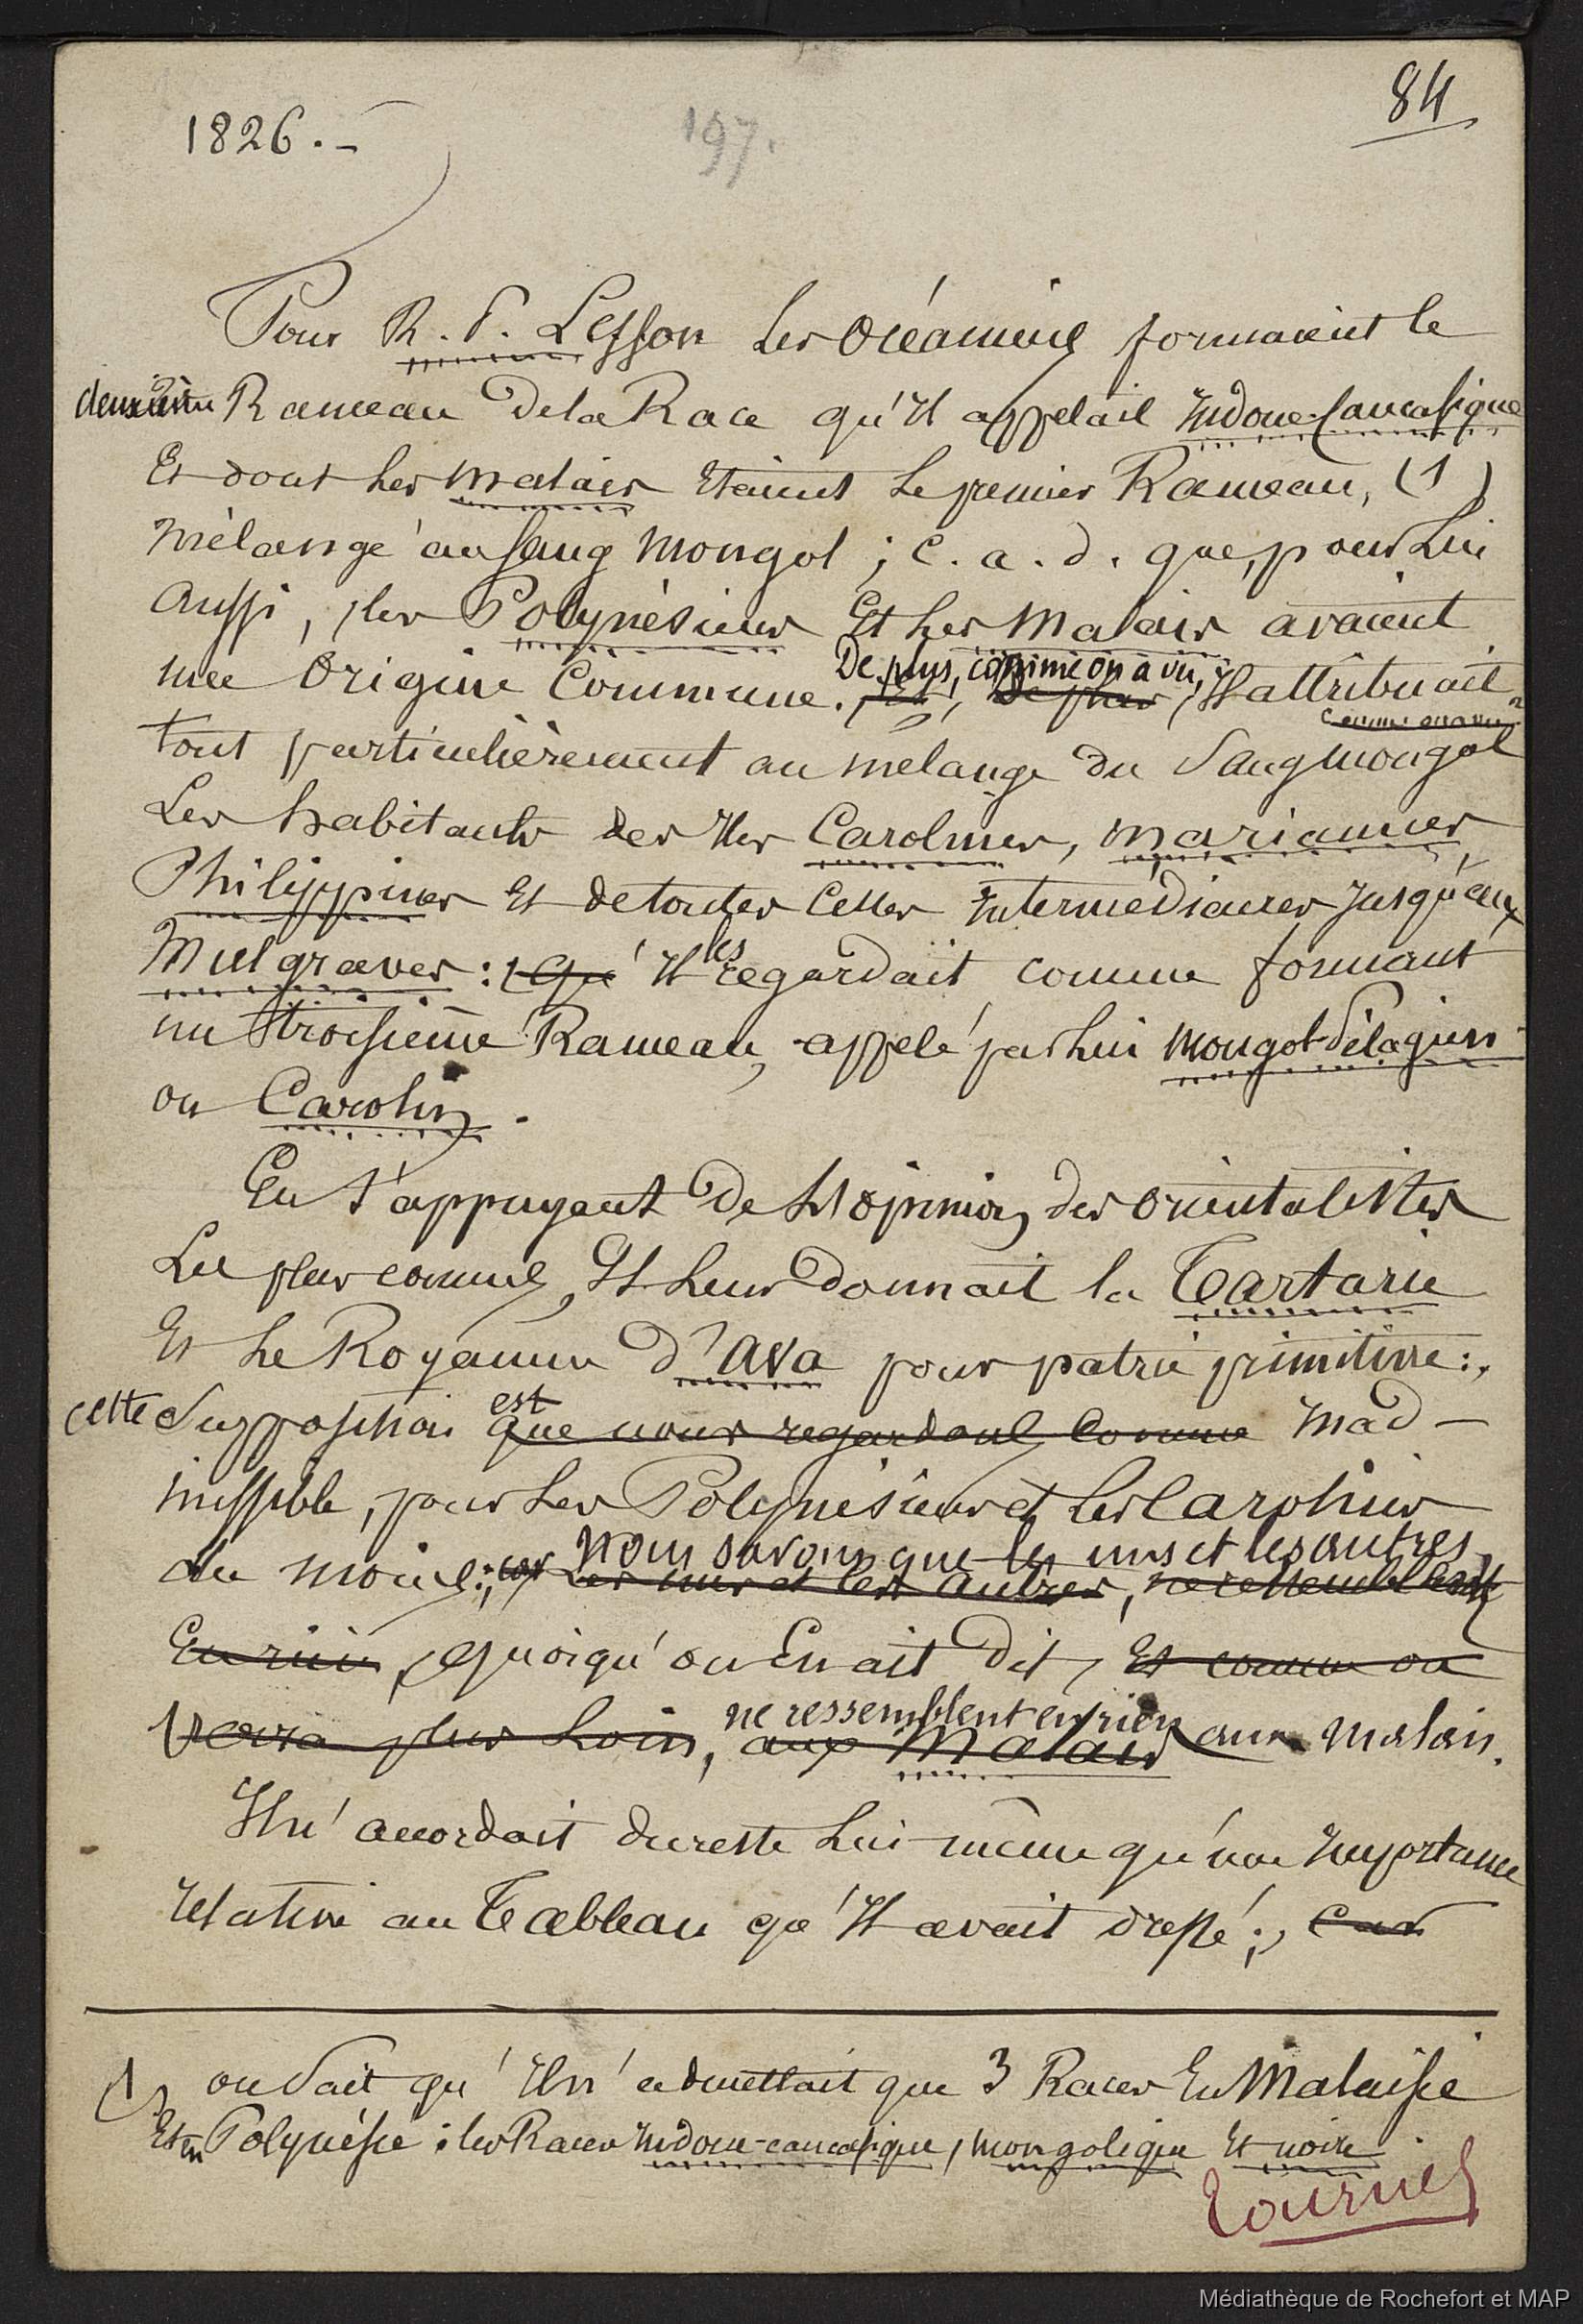 1826. –
197.
84
Pour R. P. Lesson Les Océaniens formaient le
deuxième Rameau de la Race qu'Il appelait Indoue-Caucasique
Et dont Les Malais Etaient Le premier Rameau, (1)
mélangé au sang Mongol ; c. a. d. que, pour Lui
aussi, les Polynésiens Et Les Malais avaient
une Origine Commune. De plus, comme on a vu, Il attribuait
comme on a vu
tout particulièrement au mélange du Sang mongol
Les habitants des Iles Carolines, Mariannes,
Philippines Et de toutes Celles Intermédiaires Jusqu'aux
Mulgraves : qu' Il les regardait comme formant
un troisième Rameau, appelé par Lui Mongol-Pélagien
ou Carolin.
En s'appuyant De L'opinion des orientalistes
Les plus connus, Il Leur Donnait la Tartarie
Et Le Royaume d'Ava pour patrie primitive :
cette Supposition est que nous regardons comme Inad-
missible, pour Les Polynésiens et Les Carolins
du moins ; car nous savons que les uns et les autres
Les uns et les autres, ne ressemblent
En rien, quoiqu'on En ait Dit, Et comme on
verra plus Loin, ne ressemblent en rien aux Malais aux Malais.
Il n'accordait du reste Lui-même qu'une Importance
relative au Tableau qu'Il avait dressé ; car
(1) on Sait qu' Il n' admettait que 3 Races En Malaisie
Et en Polynésie : les Races Indoue-caucasique, mongolique Et noire.
Tournez
Médiathèque de Rochefort et MAP